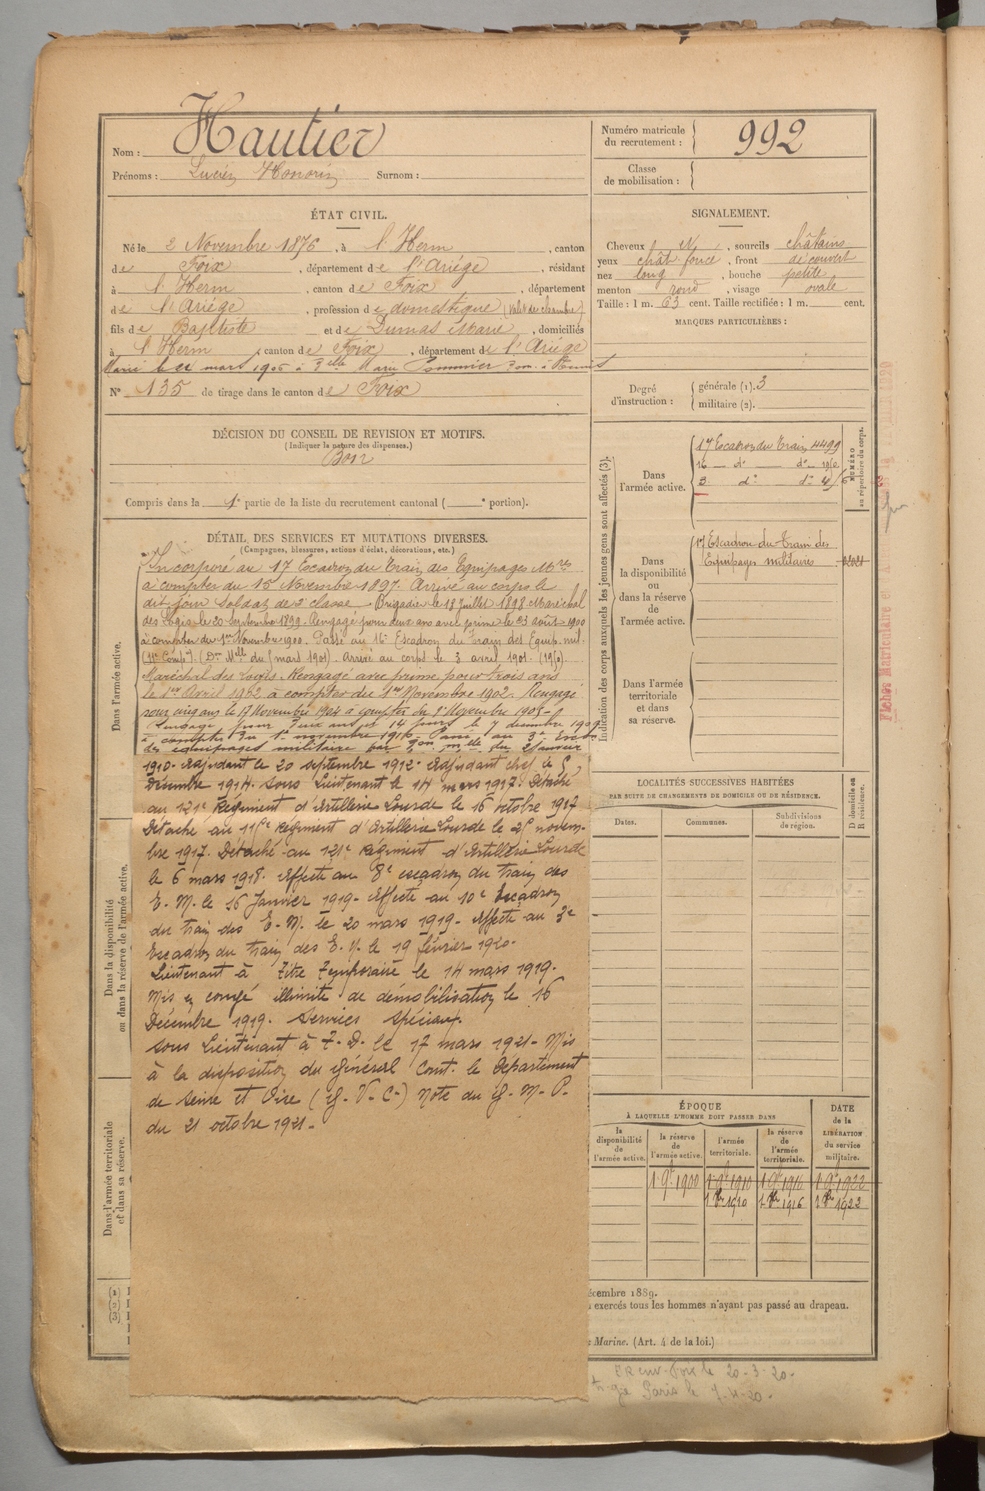 Nom : Hautier
Prénoms : Lucien Honorin Surnom :
Numéro matricule
du recrutement : 992
Classe
de mobilisation :
ÉTAT CIVIL.
Né le 2 Novembre 1876, à l'Herm, canton
de Foix, département de l'Ariége, résidant
à l'Herm, canton de Foix, département
de l'Ariége, profession de domestique (Valet de chambre)
fils de Baptiste et de Dumas Marie, domiciliés
à l'Herm, canton de Foix, département de l'Ariége
Marié le 22 mars 1905 à Delle Marie Pommier
N° 135 de tirage dans le canton de Foix
SIGNALEMENT.
Cheveux N, sourcils châtains
yeux chât. foncé, front découvert
nez long, bouche petite
menton rond, visage ovale
Taille : 1 m. 63 cent. Taille rectifiée : 1 m. cent.
MARQUES PARTICULIÈRES :
Degré
d'instruction :
générale (1). 3
militaire (2).
DÉCISION DU CONSEIL DE REVISION ET MOTIFS.
(Indiquer la nature des dispenses.)
Bon
Compris dans la 1e partie de la liste du recrutement cantonal ( e portion).
DÉTAIL DES SERVICES ET MUTATIONS DIVERSES.
(Campagnes, blessures, actions d'éclat, décorations, etc.)
Dans l'armée active.
Incorporé au 17e Escadron du Train des Equipages Mres
à compter du 15 Novembre 1897. Arrivé au corps le
dit jour soldat de 2e classe. Brigadier le 18 Juillet 1898 Maréchal
des Logis le 20 septembre 1899. Rengagé pour deux ans avec prime le 23 août 1900
à compter du 1er Novembre 1900. Passé au 16e Escadron du Train des Equip. mil.
(11e Compie) (Don Mlle du 5 mars 1901). Arrivé au corps le 3 avril 1901.
Maréchal des Logis. Rengagé avec prime pour trois ans
le 1er Avril 1902 à compter du 1er Novembre 1902. Rengagé
pour cinq ans le 17 Novembre 1904 à compter du 1er Novembre 1905.
Rengagé pour deux ans et 14 jours le 7 décembre 1909
à compter du 1er novembre 1910. Passé au 3e Escon
des équipages militaire par don mlle du 2 janvier
1910. Adjudant le 20 septembre 1912. Adjudant chef le 5
Décembre 1914. Sous Lieutenant le 14 mars 1917. Détaché
au 121e Régiment d'Artillerie Lourde le 16 octobre 1917
Détaché au 115e Régiment d'Artillerie Lourde le 25 novem-
bre 1917. Détaché au 121e Régiment d'Artillerie Lourde
le 6 mars 1918. Affecté au 8e escadron du train des
E. M. le 16 Janvier 1919. Affecté au 10e Escadron
du train des E. M. le 20 mars 1919. Affecté au 3e
Escadron du train des E. M. le 19 février 1920.
Lieutenant à Titre Temporaire le 14 mars 1919.
Mis en congé illimité de démobilisation le 16
Décembre 1919. Services spéciaux.
Sous Lieutenant à T. D. le 17 mars 1921. Mis
à la disposition du Général Comt. le Département
de Seine et Oise (G. V. C.) Note du G. M. P.
du 21 octobre 1921.
Dans la disponibilité
ou dans la réserve de l'armée active.
Dans l'armée territoriale
et dans sa réserve.
(1)
(2)
(3)
Indication des corps auxquels les jeunes gens sont affectés (3).
NUMÉRO
au répertoire du corps.
Dans
l'armée active.
17 Escadron du Train 4499
16 — do — do 1950
3 do do
Dans
la disponibilité
ou
dans la réserve
de
l'armée active.
17 Escadron du Train des
Equipages militaires
Dans l'armée
territoriale
et dans
sa réserve.
LOCALITÉS SUCCESSIVES HABITÉES
PAR SUITE DE CHANGEMENTS DE DOMICILE OU DE RÉSIDENCE.
Dates. Communes. Subdivisions
de région.
D domicile ou
R résidence.
ÉPOQUE
À LAQUELLE L'HOMME DOIT PASSER DANS
la
disponibilité
de
l'armée active.
la réserve
de
l'armée active.
l'armée
territoriale.
la réserve
de
l'armée
territoriale.
DATE
de la
LIBÉRATION
du service
militaire.
1 9bre 1900 1 9bre 1910 1 9bre 1916 1 9bre 1922
décembre 1889.
exercés tous les hommes n'ayant pas passé au drapeau.
Marine. (Art. 4 de la loi.)
Foix le 20-3-20.
Paris le